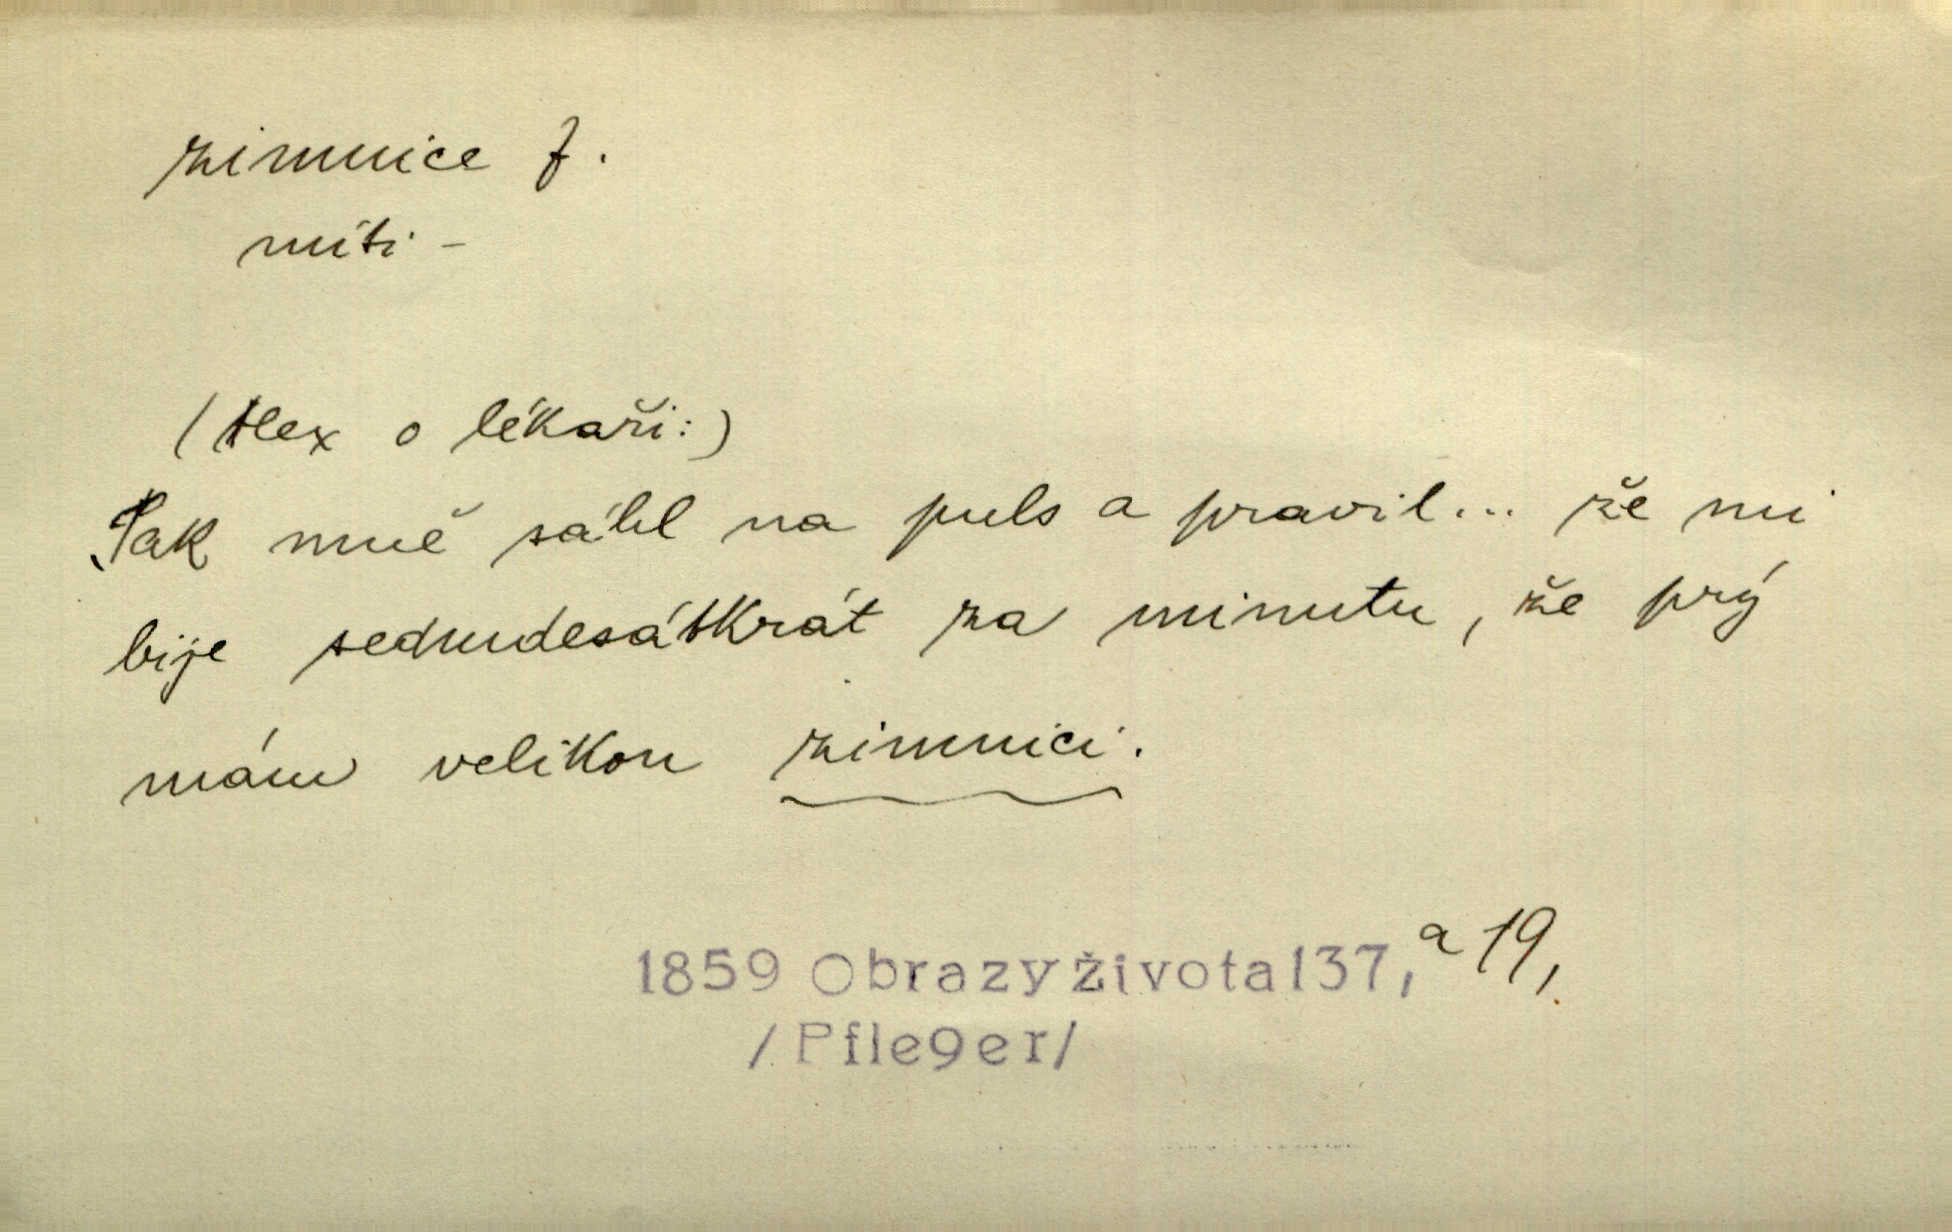 zimnice f.
míti -
(Alex o lékaři:)
Pak mně sáhl na puls a pravil... že mi
bije sedmdesátkrát za minutu, že prý
mám velikou zimnici.
1859 Obrazy života 137, a 19,
/Pfleger/